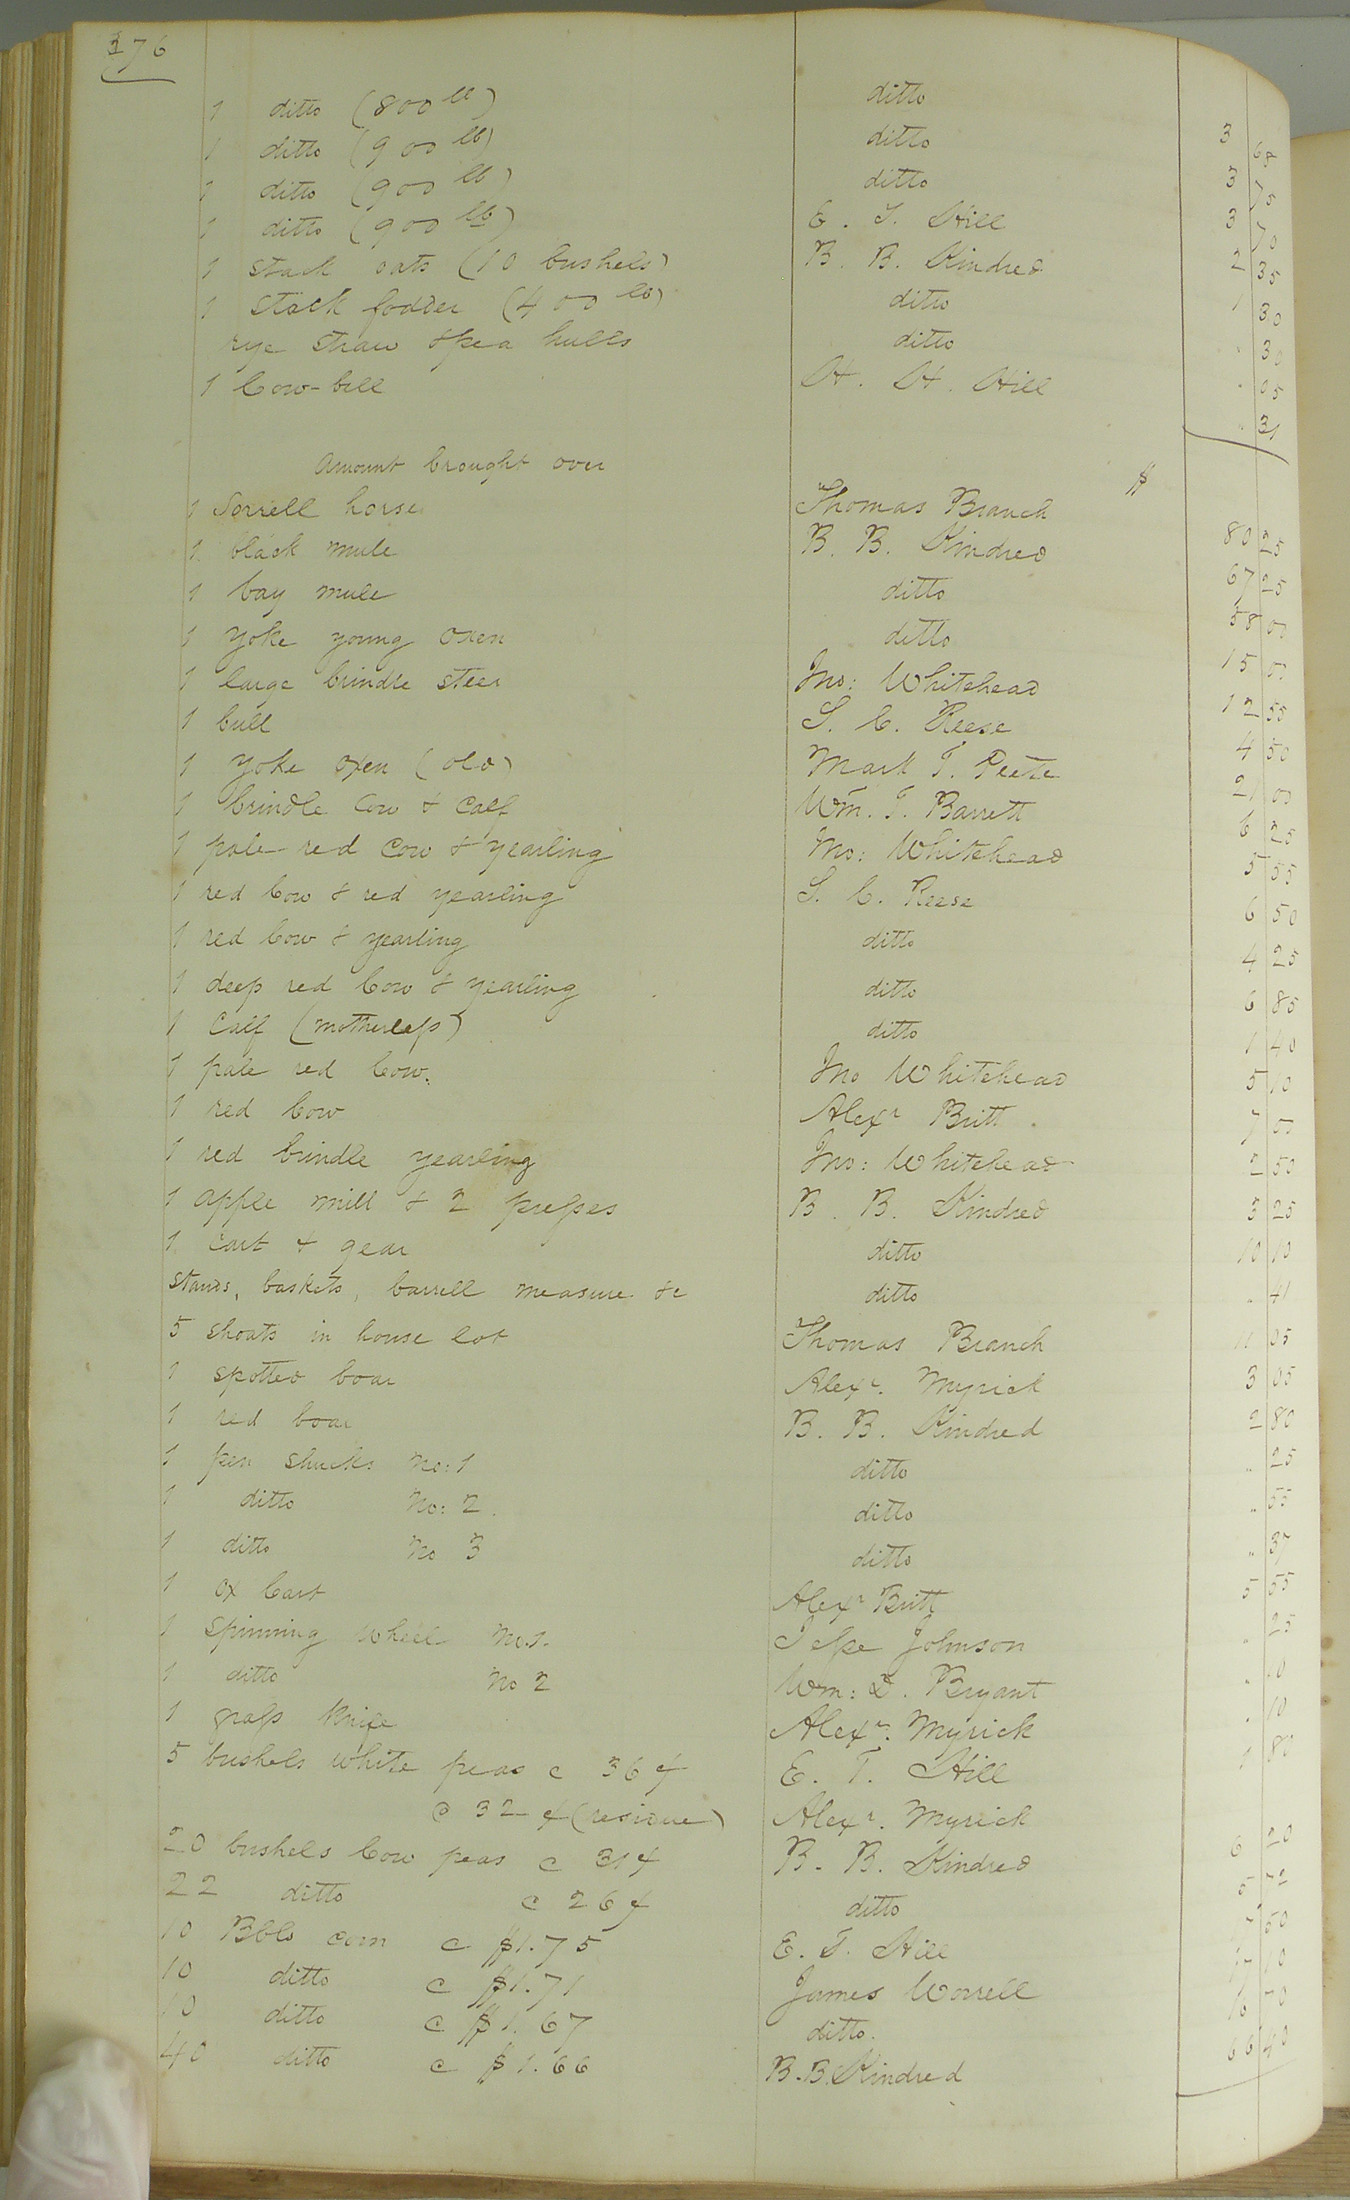 376
1 ditto (800 lb) ditto 3 68
1 ditto (900 lb) ditto 3 75
1 ditto (900 lb) ditto 3 70
1 ditto (900 lb) E. T. Hill 2 35
1 stack oats (10 bushels) B. B. Kindred 1 30
1 stack fodder (400 lb) ditto " 30
rye straw & pea hulls ditto " 05
1 Cow-bell H. H. Hill " 31
Amount brought over $
1 Sorrell horse Thomas Branch 80 25
1 black mule B. B. Kindred 67 25
1 bay mule ditto 58 00
1 yoke young oxen ditto 15 00
1 large brindle steer Jno: Whitehead 12 55
1 bull S. C. Reese 4 50
1 yoke oxen (old) Mark T. Peete 21 00
1 brindle Cow & Calf Wm. T. Barrett 6 25
1 pale red Cow & yearling Jno: Whitehead 5 55
1 red Cow & red yearling S. C. Reese 6 50
1 red Cow & yearling ditto 4 25
1 deep red Cow & yearling ditto 6 85
1 Calf (motherless) ditto 1 40
1 pale red Cow. Jno Whitehead 5 10
1 red Cow Alexr Britt 7 00
1 red brindle yearling Jno: Whitehead 2 50
1 apple mill & 2 presses B. B. Kindred 3 25
1 Cart & gear ditto 10 10
stands, baskets, barrell measure &c ditto " 41
5 shoats in house lot Thomas Branch 11 05
1 spotted boar Alexr. Myrick 3 05
1 red boar B. B. Kindred 2 80
1 pen shucks No: 1 ditto " 25
1 ditto No: 2. ditto " 55
1 ditto No 3 ditto " 37
1 ox Cart Alexr Britt 5 55
1 Spinning Wheel No. 1. Jesse Johnson " 25
1 ditto No 2 Wm: D. Bryant " 10
1 grass knife Alexr. Myrick " 10
5 bushels white peas @ 36 ¢ E. T. Hill 1 80
@ 32 ¢ (residue) Alexr. Myrick
20 bushels Cow peas @ 31 ¢ B. B. Kindred 6 20
22 ditto @ 26 ¢ ditto 5 72
10 Bbls corn @ $1.75 E. T. Hill 17 50
10 ditto @ $1.71 James Worrell 17 10
10 ditto @ $1.67 ditto. 16 70
40 ditto @ $1.66 B. B. Kindred 66 40